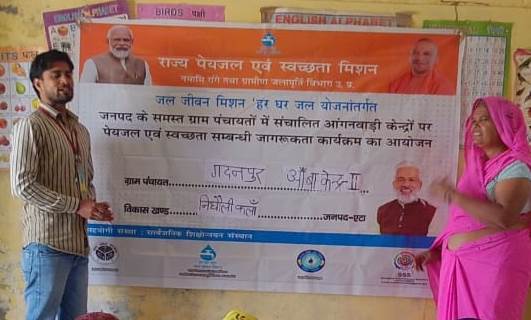 ENGLISH ALPHABET
BIRDS पक्षी
ENGLISH ALPHABET
राज्य पेयजल एवं स्वच्छता मिशन
नमामि गंगे तथा ग्रामीण जलापूर्ति विभाग उ. प्र.
जल जीवन मिशन 'हर घर जल योजनांतर्गत
जनपद के समस्त ग्राम पंचायतों में संचालित आंगनवाड़ी केन्द्रों पर
पेयजल एवं स्वच्छता सम्बन्धी जागरूकता कार्यक्रम का आयोजन
ग्राम पंचायत.......गदनपुर आँ0बा0 केन्द्र II...
विकास खण्ड.........निधौली कलाँ..................जनपद-एटा
सहयोगी संस्था : सार्वजनिक शिक्षोन्नयन संस्थान
SSS